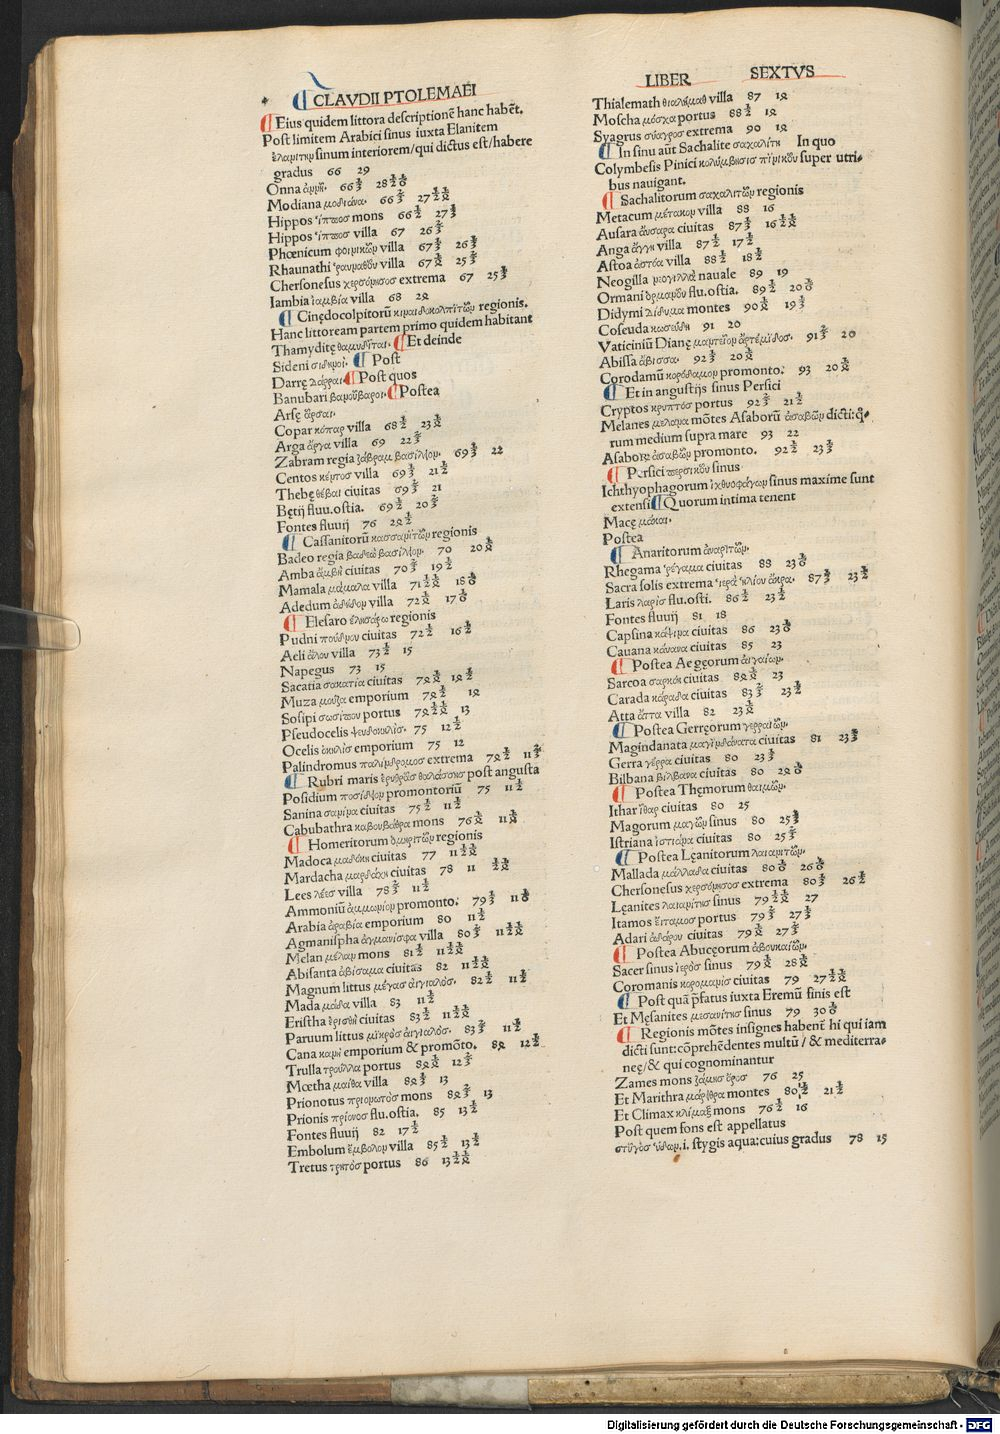 CLAVDII PTOLEMAEI
Eius quidem littora descriptionē hanc habēt.
Post limitem Arabici sinus iuxta Elanitem
ἐλανιτην sinum interiorem/qui dictus est/habere
gradus 66 29
Onna ὄννη.
Modiana μοδιάνα.
Hippos ἵππος mons
Hippos ἵππος villa 67
Phœnicum φοινικῶν villa
Rhaunathi ῥαυναθοῦ villa
Chersonesus χερσόνησος extrema 67
Iambia ἰαμβία villa 68
Cinędocolpitorū κιναιδοκολπιτῶν regionis.
Hanc littoream partem primo quidem habitant
Thamyditę θαμυδῖται. Et deinde
Sideni σιδηνοί. Post
Darrę δάρραι Post quos
Banubari βανούβαροι. Postea
Arsę ἄρσαι.
Copar κόπαρ villa
Arga ἄργα villa 69
Zabram regia ζάβραμ βασίλειον.
Centos κέντος villa
Thebę θέβαι ciuitas 21
Bętij fluu. ostia.
Fontes fluuij 76
Cassanitorū κασσανιτῶν regionis
Badeo regia βαδεὼ βασίλειον. 70
Amba ἄμβη ciuitas
Mamala μάμαλα villa
Adedum ἄδεδου villa
Elesaro ἐλισάρω regionis
Pudni πούδνου ciuitas
Aeli ἄλου villa 15
Napegus 73 15
Sacatia σακατία ciuitas
Muza μούζα emporium
Sosipi σωσίππου portus 13
Pseudocelis ψευδοκηλίς. 75
Ocelis ὄκηλις emporium 75 12
Palindromus παλίνδρομος extrema
Rubri maris ἐρυθρᾶς θαλάσσης post angusta
Posidium ποσίδειον promontoriū 75
Sanina σανίνα ciuitas
Cabubathra καβουβάθρα mons
Homeritorum ὁμηριτῶν regionis
Madoca μαδόκη ciuitas 77
Mardacha μαρδάχη ciuitas 78
Lees λέες villa
Ammoniū ἀμμώνιον promonto.
Arabia ἀραβία emporium 80
Agmanispha ἀγμανίσφα villa
Melan μέλαν mons
Abisama ἀβίσαμα ciuitas 82
Magnum littus μέγας αἰγιαλός.
Mada μάδα villa 83
Eristha ἐρισθὴ ciuitas
Paruum littus μικρὸς αἰγιαλός.
Cana κανὴ emporium & promōto.
Trulla τρούλλα portus
Mœtha μαίθα villa 13
Prionotus πριονωτὸς mons 13
Prionis πρίονος flu. ostia. 85
Fontes fluuij 82
Embolum ἔμβολον villa
Tretus τρητὸς portus 86
LIBER SEXTVS
Thialemath θιαλήμαθ villa 87
Moscha μόσχα portus
Syagrus σύαγρος extrema 90
In sinu aūt Sachalite σαχαλίτη In quo
Colymbesis Pinici κολύμβησις πινικοῦ super utri-
bus nauigant.
Sachalitorum σαχαλιτῶν regionis
Metacum μέτακον villa 88 16
Ausara ἄυσαρα ciuitas
Anga ἄγγη villa
Astoa ἀστόα villa
Neogilla νεογιλλὰ nauale 89 19
Ormani ὀρμανοῦ flu. ostia.
Didymi δίδυμα montes
Coseuda κωσεύδη 91 20
Vaticiniū Dianę μαντεῖον ἀρτέμιδος. 20
Abissa ἄβισσα.
Corodamū κορόδαμον promonto. 93
Et in angustijs sinus Persici
Cryptos κρυπτός portus
Melanes μελανα mōtes Asaborū ἀσαβῶν dicti:q̄-
rum medium supra mare 93 22
Asaborę ἀσαβῶν promonto.
Persici περσικοῦ sinus
Ichthyophagorum ἰχθυοφάγων sinus maxime sunt
extensi Quorum intima tenent
Macę μάκαι.
Postea
Anaritorum ἀναριτῶν.
Rhegama ῥέγαμα ciuitas 88
Sacra solis extrema ἱερὰ ἡλίου ἄκρα.
Laris λαρὶς flu. osti.
Fontes fluuij 81 18
Capsina κάψινα ciuitas 86
Cauana κάυανα ciuitas 85 23
Postea Aegęorum αἰγαίων.
Sarcoa σαρκόη ciuitas 23
Carada κάραδα ciuitas
Atta ἄττα villa 82
Postea Gerręorum γερραίων.
Magindanata μαγινδάνατα ciuitas 81
Gerra γέρρα ciuitas 80
Bilbana βίλβανα ciuitas 80
Postea Thęmorum θαιμῶν.
Ithar ἴθαρ ciuitas 80 25
Magorum μαγῶν sinus 80
Istriana ἰστιάνα ciuitas 80
Postea Lęanitorum λαιανιτῶν.
Mallada μάλλαδα ciuitas
Chersonesus χερσόνησος extrema
Lęanites λαιανίτης sinus 27
Itamos ἴταμος portus
Adari ἀδάρου ciuitas
Postea Abucęorum ἀβουκαίων.
Sacer sinus ἱερὸς sinus
Coromanis κορομανὶς ciuitas 79
Post quā p̄fatus iuxta Eremū finis est
Et Męsanites μεσανίτης sinus 79
Regionis mōtes insignes habent̄ hi qui iam
dicti sunt: cōprehēdentes multū / & mediterra-
neę/& qui cognominantur
Zames mons ζάμης ὄρος 76 25
Et Marithra μάριθρα montes
Et Climax κλίμαξ mons 16
Post quem fons est appellatus
στύγος ὕδωρ. i. stygis aqua: cuius gradus 78 15
Digitalisierung gefördert durch die Deutsche Forschungsgemeinschaft - DFG